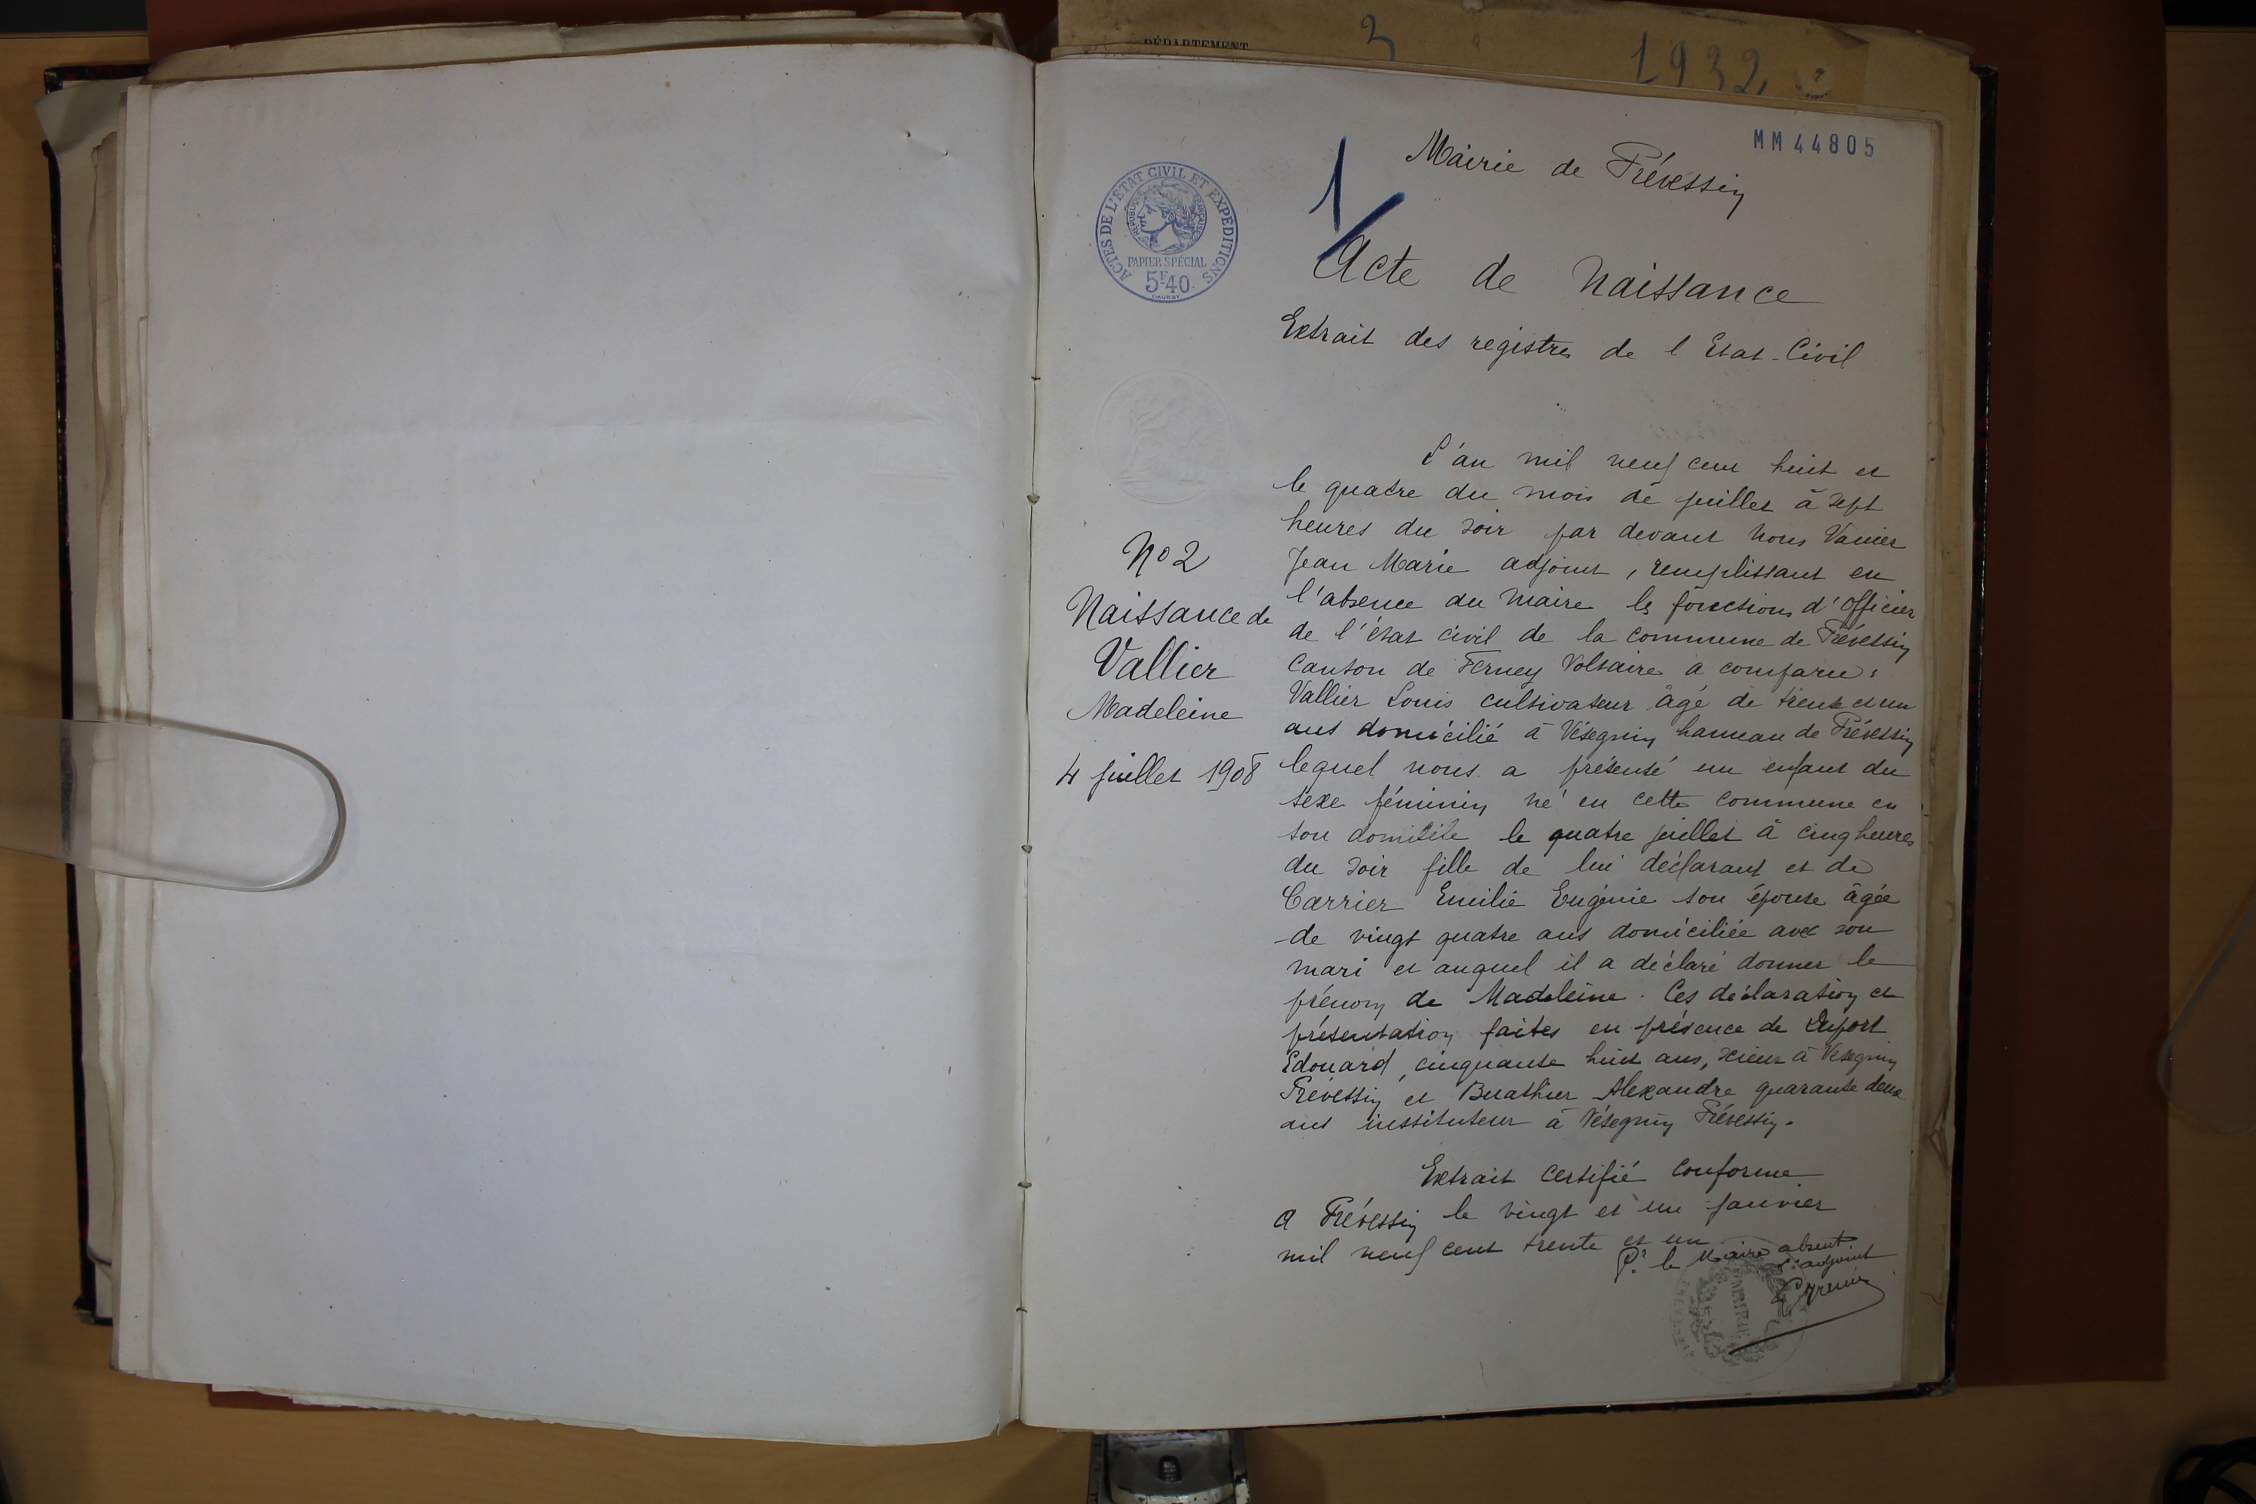 DÉPARTEMENT
3
1932
MM 44805
Mairie de Prévessin
ACTES DE L'ÉTAT CIVIL ET EXPÉDITIONS
RÉPUBLIQUE FRANÇAISE
PAPIER SPÉCIAL
5F40
1/
Acte de Naissance
Extrait des registres de l Etat-Civil
No 2
Naissance de
Vallier
Madeleine
4 juillet 1908
L'an mil neuf cent huit et
le quatre du mois de juillet à sept
heures du soir par devant nous Vanier
Jean Marie adjoint, remplissant en
l'absence du Maire les fonctions d'officier
de l'état civil de la commune de Prévessin
Canton de Ferney Voltaire a comparu :
Vallier Louis cultivateur âgé de trente et un
ans domicilié à Vésegnin hameau de Prévessin
lequel nous a présenté un enfant du
sexe féminin né en cette commune en
son domicile le quatre juillet à cinq heures
du soir fille de lui déclarant et de
Carrier Emilie Eugénie son épouse âgée
de vingt quatre ans domiciliée avec son
mari et auquel il a déclaré donner le
prénom de Madeleine. Ces déclaration et
présentation faites en présence de Dufort
Edouard, cinquante huit ans, scieur à Vesegnin
Prévessin et Buathier Alexandre quarante deux
ans instituteur à Vésegnin Prévessin.
Extrait certifié conforme
A Prévessin le vingt et un janvier
mil neuf cent trente et un
Pr. le Maire absent
L'adjoint
MAIRIE